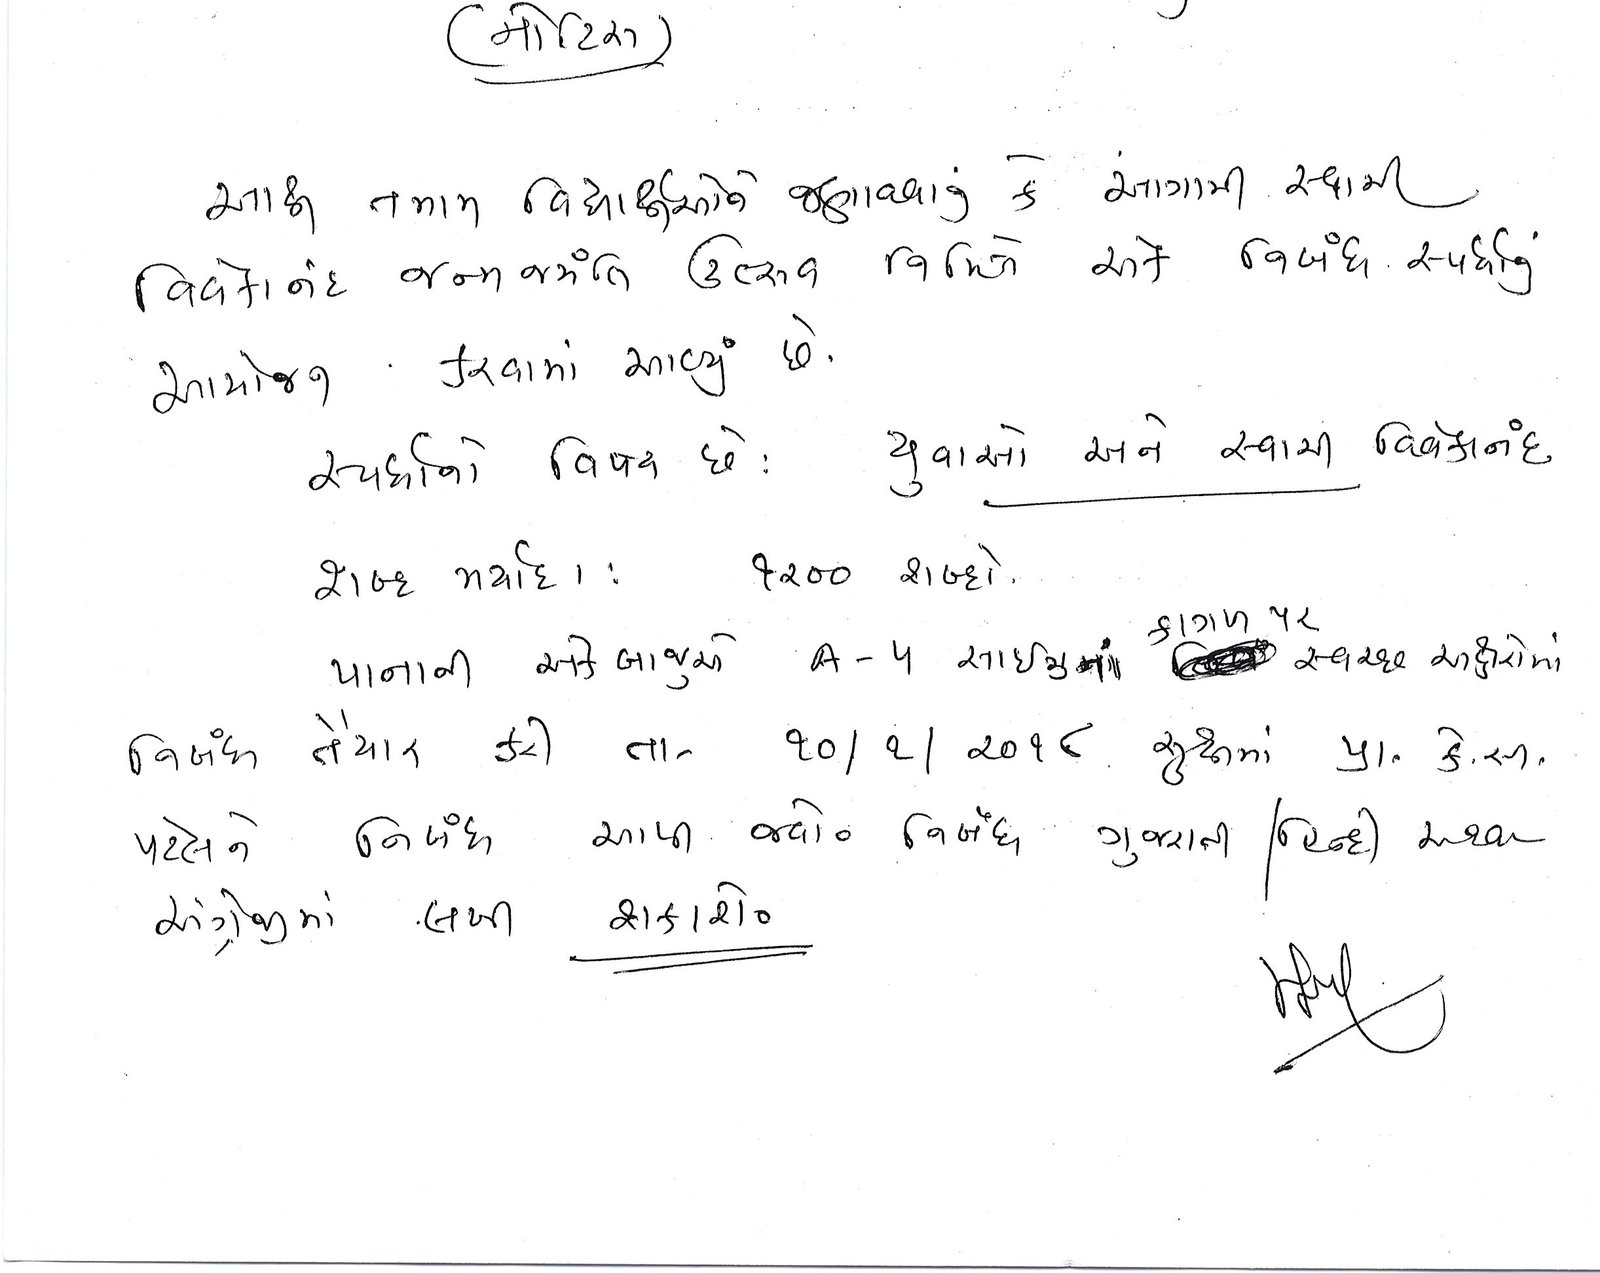 (નોટિસ)
આથી તમામ વિદ્યાર્થીઓને જણાવવાનું કે આગામી સ્વામી
વિવેકાનંદ જન્મજયંતિ ઉત્સવ નિમિત્તે એક નિબંધ સ્પર્ધાનું
આયોજન કરવામાં આવ્યું છે.
સ્પર્ધાનો વિષય છે: યુવાઓ અને સ્વામી વિવેકાનંદ
શબ્દ મર્યાદા: ૧૨૦૦ શબ્દો.
કાગળ પર
પાનાની એક બાજુએ A-૫ સાઈઝનાં સ્વચ્છ અક્ષરોમાં
નિબંધ તૈયાર કરી તા. ૧૦/૧/૨૦૧૬ સુધીમાં પ્રા. કે.આ.
પટેલને નિબંધ આપી જવો. નિબંધ ગુજરાતી/હિન્દી અથવા
અંગ્રેજીમાં લખી શકાશે.